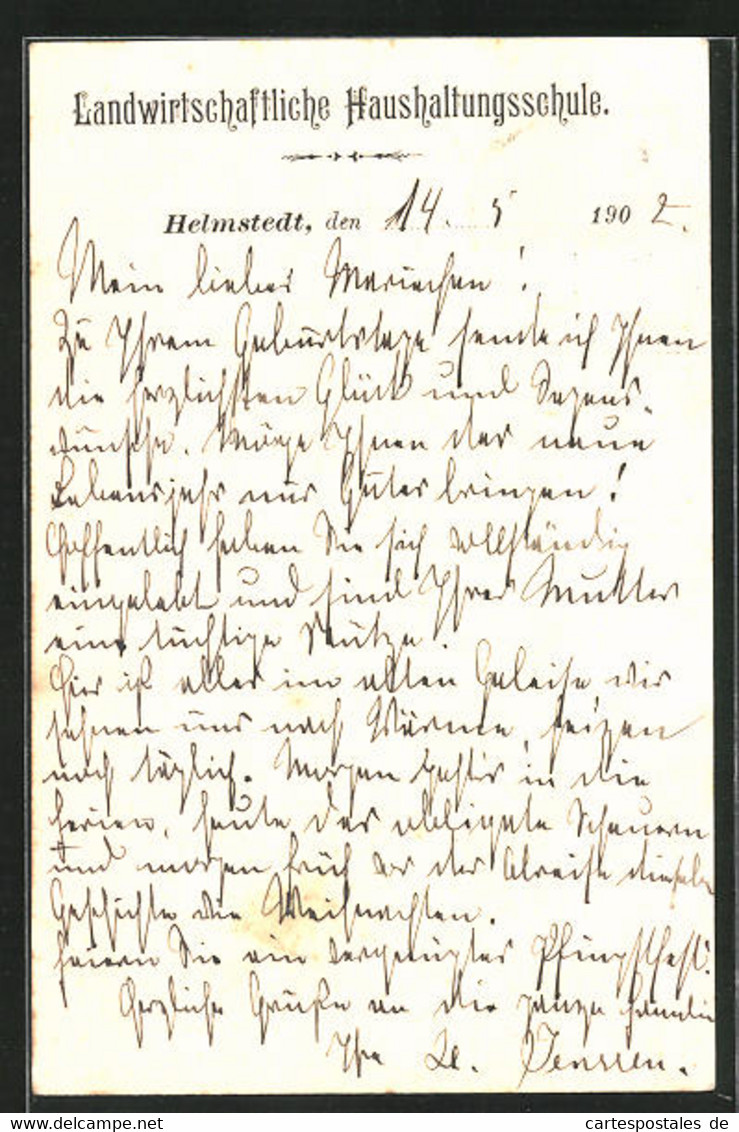 Landwirtschaftliche Haushaltungsschule.
Helmstedt, den 14. 5 1902.
Mein liebes Mariechen!
Zu Ihrem Geburtstage sende ich Ihnen
die herzlichsten Glück und Segens-
wünsche. Möge Ihnen das neue
Lebensjahr nur Gutes bringen!
Hoffentlich haben Sie sich vollständig
eingelebt und sind Ihrer Mutter
eine tüchtige Stütze.
Hier ist alles im alten Geleise, wir
sehnen uns nach Wärme, heizen
noch täglich. Morgen gehts in die
Ferien, heute das obligate Scheuern
und morgen früh vor der Abreise dieselbe
Geschichte wie Weihnachten.
Feiern Sie ein vergnügtes Pfingstfest!
Herzliche Grüße an die ganze Familie
Ihre Jenssen.
www.delcampe.net
cartespostales de